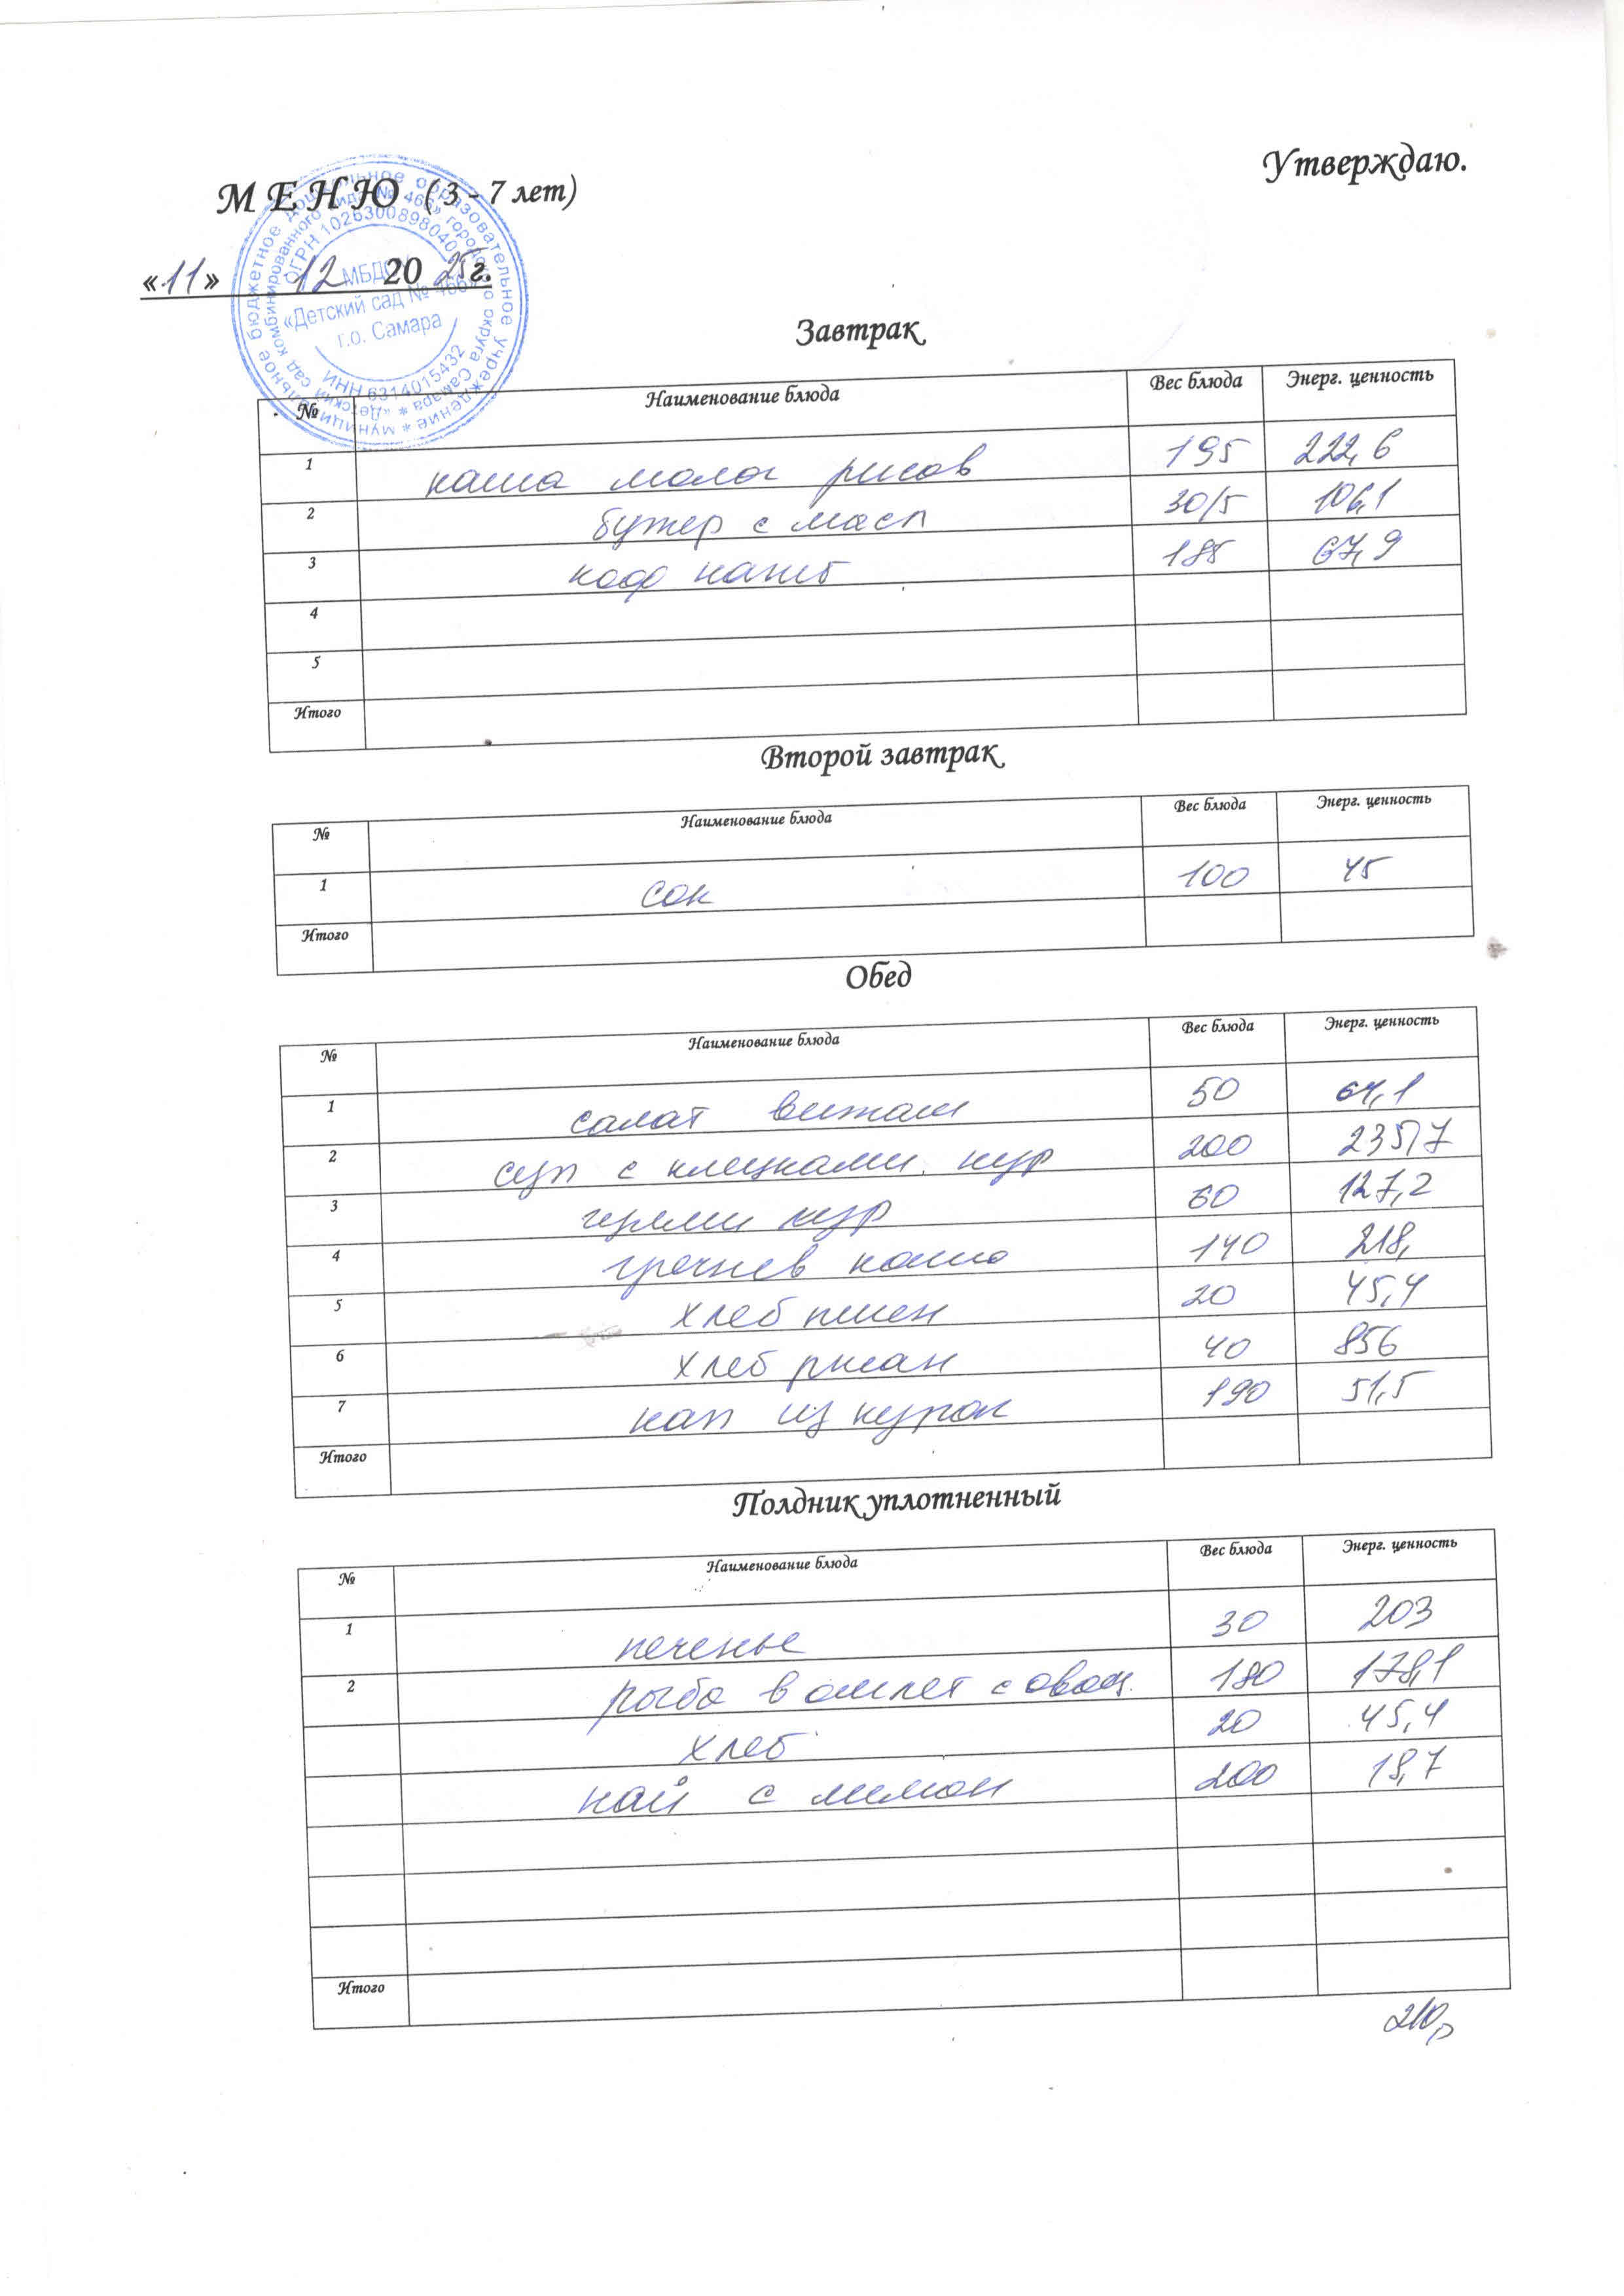 Утверждаю.
М Е Н Ю ( 3 - 7 лет)
«11» 12 2025г.
муниципальное бюджетное дошкольное образовательное учреждение * «Детский сад комбинированного вида № 466» городского округа Самара *
ОГРН 1026300898040
МБДОУ
«Детский сад № 466»
г.о. Самара
ИНН 6314015432
Завтрак
№ Наименование блюда Вес блюда Энерг. ценность
1 каша молоч рисов 195 222,6
2 бутер с масл 30/5 106,1
3 коф напит 185 67,9
4
5
Итого
Второй завтрак
№ Наименование блюда Вес блюда Энерг. ценность
1 сок 100 45
Итого
Обед
№ Наименование блюда Вес блюда Энерг. ценность
1 салат витам 50 64,1
2 суп с клецками кур 200 235,7
3 кур 60 127,2
4 гречнев каша 140 218,
5 хлеб пшен 20 45,4
6 хлеб ржан 40 856
7 нап из курол 190 51,5
Итого
Полдник уплотненный
№ Наименование блюда Вес блюда Энерг. ценность
1 печенье 30 203
2 рыба в омлет с овощ. 180 178,1
хлеб 20 45,4
чай с лимон 200 18,7
Итого
210р